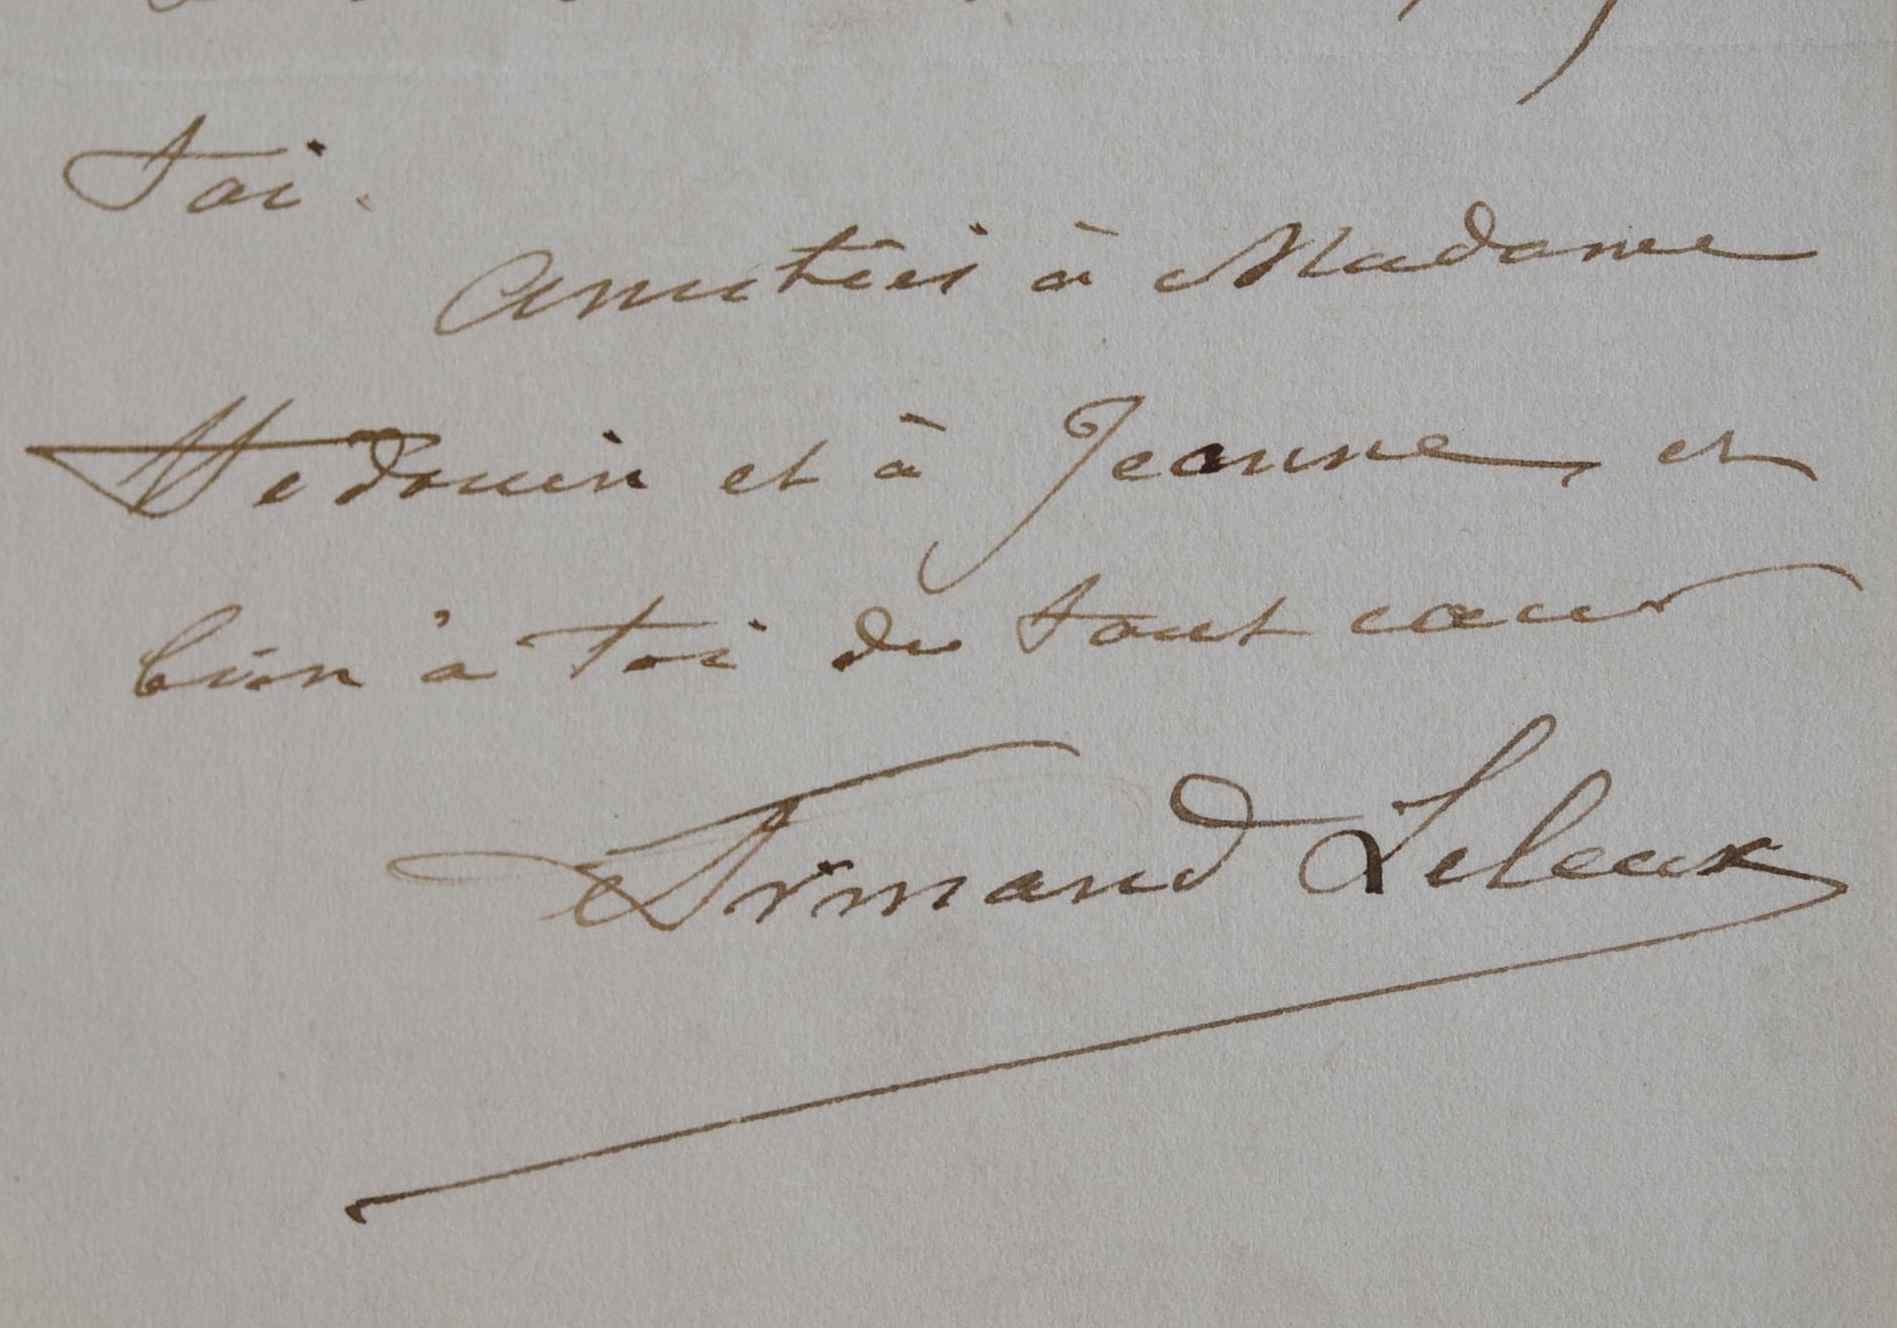 toi.
Amitiés à Madame
Hédouin et à Jeanne, et
bien à toi de tout cœur
Armand Leleux